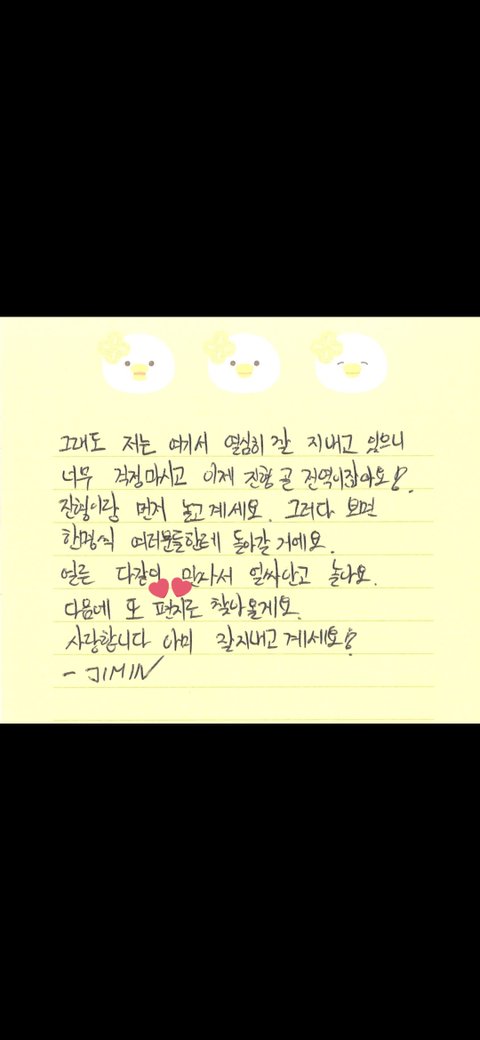 그래도 저는 여기서 열심히 잘 지내고 있으니
너무 걱정마시고 이제 진형 곧 전역이잖아요!
진형이랑 먼저 놀고 계세요. 그러다 보면
한명씩 여러분들한테 돌아갈 거예요.
얼른 다같이 만나서 얼싸안고 놀아요.
다음에 또 편지로 찾아올게요.
사랑합니다 아미 잘지내고 계세요!
- JIMIN